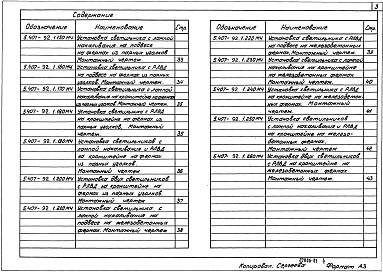 3
Содержание
Обозначение Наименование Стр.
5.407-92.1.150МЧ Установка светильника с лампой
накаливания на подвесе
на фермах из парных уголков
Монтажный чертеж 33
5.407-92.1.160МЧ Установка светильника с РЛВД
на подвесе на фермах из парных
уголков. Монтажный чертеж 34
5.407-92.1.170МЧ Установка светильника с лампой
накаливания на кронштейне на фермах
из парных уголков. Монтажный чертеж 35
5.407-92.1.180МЧ Установка светильника с РЛВД
на кронштейне на фермах из
парных уголков. Монтажный
чертеж. 35
5.407-92.1.190МЧ Установка светильников с
лампой накаливания и РЛВД
на кронштейне на фермах
из парных уголков
Монтажный чертеж 36
5.407-92.1.200МЧ Установка двух светильников
с РЛВД на кронштейне на
фермах из парных уголков
Монтажный чертеж 37
5.407-92.1.210МЧ Установка светильника с
лампой накаливания на
подвесе на железобетонных
фермах. Монтажный чертеж 38
Обозначение Наименование Стр.
5.407-92.1.220МЧ Установка светильника с РЛВД
на подвесе на железобетонных
фермах. Монтажный чертеж 39
5.407-92.1.230МЧ Установка светильника с лампой
накаливания на кронштейне
на железобетонных фермах
Монтажный чертеж 40
5.407-92.1.240МЧ Установка светильника с РЛВД
на кронштейне на железобетон-
ных фермах. Монтажный
чертеж 41
5.407-92.1.250МЧ Установка светильников
с лампой накаливания и РЛВД
на кронштейне на железо-
бетонных фермах.
Монтажный чертеж 42
5.407-92.1.260МЧ Установка двух светильников
с РЛВД на кронштейне на
железобетонных фермах
Монтажный чертеж 43
Копировал: Сергеева Формат А3